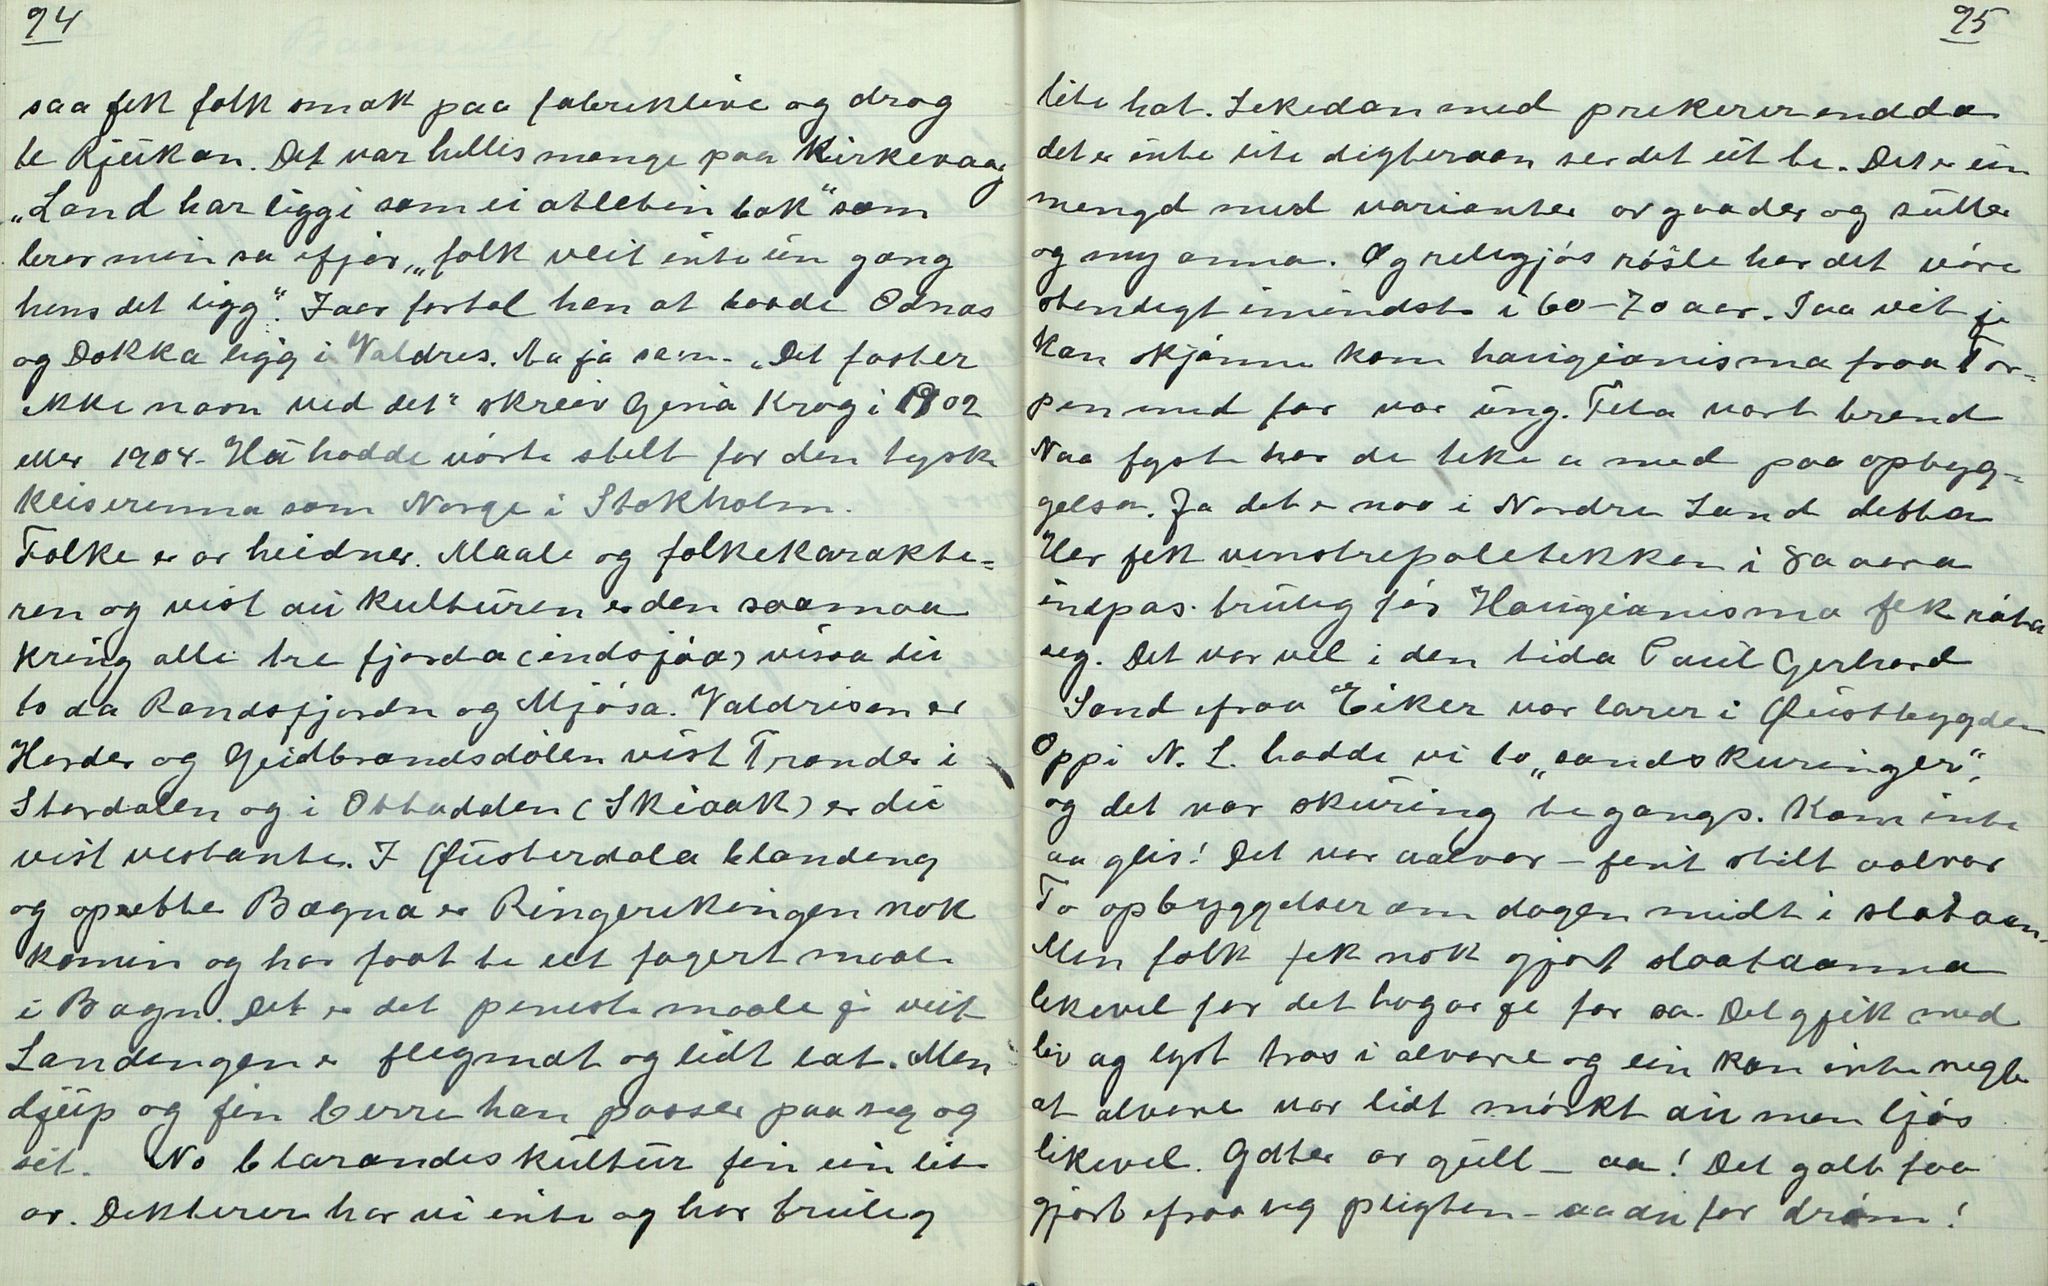 94
saa fek folk smak paa fabrieklive og drog
te Rjukan. Det var helles mange paa Kirkevaag
„Land har liggi som ei atleten bok" som
lerer min sa ifjor, „folk veit inte ein gang
hens det ligg". I aar fortal han at baade Odnas
og Dokka ligg i Valdres. Aa ja san. „Det faster
ikke navn ved det" skreiv Gina Krog i 1902
eller 1904. Hu hadde vörte stelt for den tyske
keiserinna som Norge i Stokholm.
Folke er or heidner. Maale og folkekarakte=
ren og vist au kulturen er den saamaa
kring alle tre fjorda (indsjöa) vissa dei
to da Randsfjordn og Mjösa. Valdrisen er
Horder og Gudbrandsdölen vist Trønder i
Stordalen og i Ottadalen (Skiaak) er dei
vist vestante. I Øusterdala blandeng
og opette Bægna er Ringerikingen nok
komin og har faat te eit fagert maale
i Bagn. Det er det peneste maale je veit
Landengen er flegmat og lidt lat. Men
djup og fin berre han passer paa seg og
sit. No blarandes kultur fin ein lite
or. Dikterer har vi inte og har truleg
95
lite hat. Lekedan med prekerer endda
det er inte lite digteraan ser det ut te. Det er ein
mengd med varianter or gaader og sütter
og my anna. Og religjös rösle har det vöre
stendigt imindste i 60–70 aar. Saa vit je
kan skjönne kom haugianisma fraa Tor=
pen med far var ung. Feta vart brend
Naa fyst har de teke a med paa opbyg=
gelsa. Ja det er naa i Nordre Land detta
Her fek venstrepoletikken i 80 aara
indpas truleg för Haugianisma fek röta
seg. Det var vel i den tida Paul Gerhard
Sand ifraa Eiker var lærer i Øustbygden
Oppi N. L. hadde vi to „sandskuringer",
og det var skuring te gangs. Kom inte
aa glis! Det var aalvor – fent stilt aalvor
To opbyggelser om dagen midt i slaataan.
Men folk fek nok gjort slaataanna
likevel for det hugar je far sa. Det gjek med
liv og lyst tros i alvore og ein kan inte negte
at alvore var lidt mörkt au men ljös
likevel. Gdter or gull – aa! Det galt faa
gjort ifraa seg pligten – aadn for dröm!